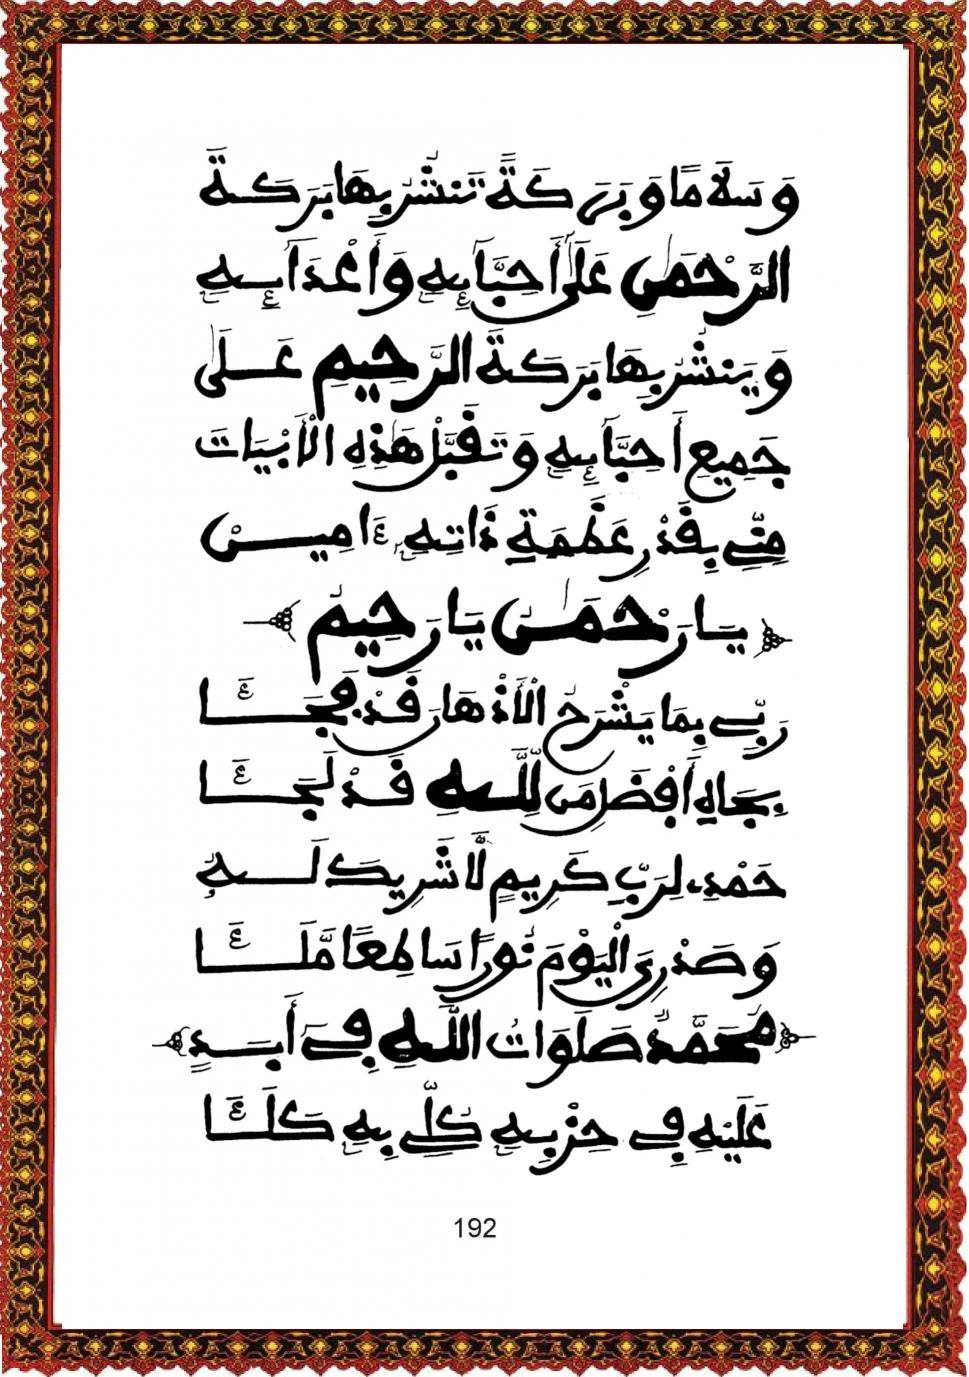 وَسَلَامًا وَبَرَكَةً تَنشُرُ بِهَا بَرَكَةَ
الرَّحْمَٰنِ عَلَىٰ أَحِبَّآئِهِ وَأَعْدَآئِهِ
وَيَنشُرُ بِهَا بَرَكَةَ الرَّحِيمِ عَلَىٰ
جَمِيعِ أَحِبَّآئِهِ وَتَقَبَّلْ هَٰذِهِ الْأَبْيَاتَ
مِنِّي بِقَدْرِ عَظَمَةِ ذَاتِهِ ءَامِينْ
يَا رَحْمَٰنُ يَا رَحِيمُ
رَبِّي بِمَا يَشْرَحُ الْأَذْهَانَ قَدْ فَجَأَ
بِجَاهِ أَفْضَلِ مَن لِّلَّهِ قَدْ لَجَأَ
حَمْدِي لِرَبٍّ كَرِيمٍ لَّا شَرِيكَ لَهُ
وَصَدْرِيَ الْيَوْمَ نُورًا سَاطِعًا مَّلَأَ
مُحَمَّدٌ صَلَوَاتُ اللَّهِ فِي أَبَدٍ
عَلَيْهِ فِي حِزْبِهِ كُلِّي بِهِ كَلَأَ
192